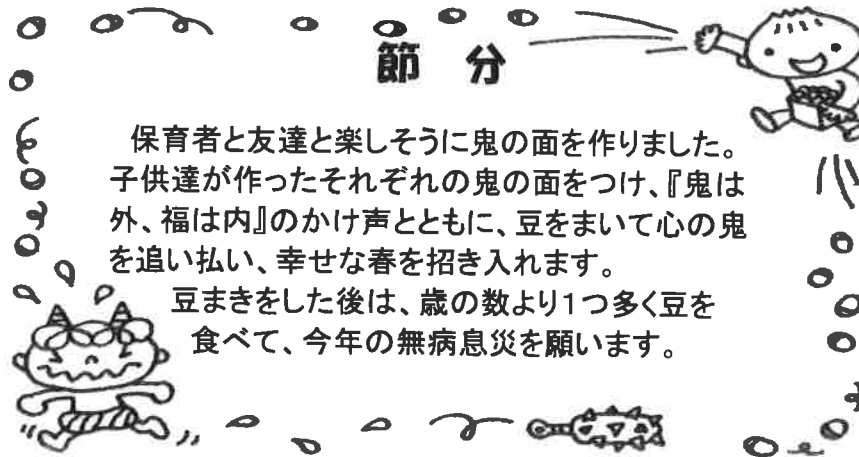 節 分
保育者と友達と楽しそうに鬼の面を作りました。
子供達が作ったそれぞれの鬼の面をつけ、『鬼は
外、福は内』のかけ声とともに、豆をまいて心の鬼
を追い払い、幸せな春を招き入れます。
豆まきをした後は、歳の数より1つ多く豆を
食べて、今年の無病息災を願います。